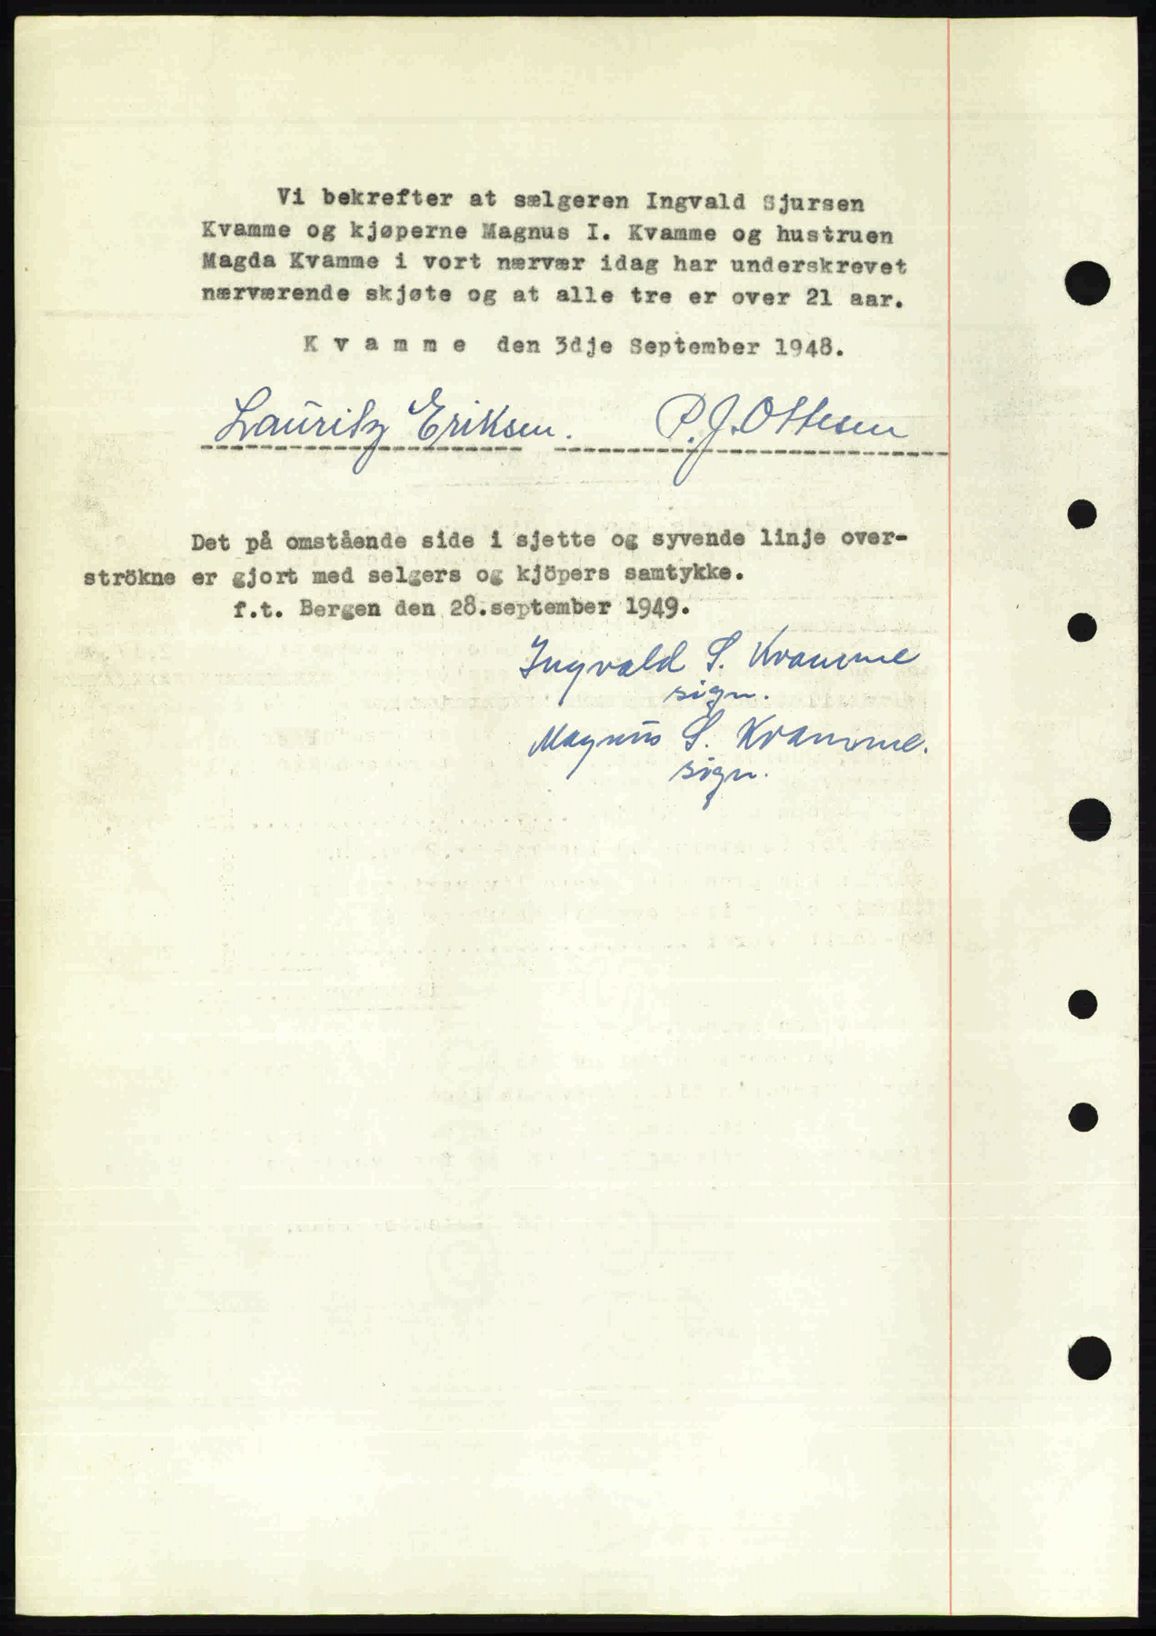 Vi bekrefter at sælgeren Ingvald Sjursen
Kvamme og kjøperne Magnus I. Kvamme og hustruen
Magda Kvamme i vort nærvær idag har underskrevet
nærværende skjøte og at alle tre er over 21 aar.
K v a m m e den 3dje September 1948.
Lauritz Eriksen. P.J. Ottesen
Det på omstående side i sjette og syvende linje over-
strökne er gjort med selgers og kjöpers samtykke.
f.t. Bergen den 28.september 1949.
Ingvald S. Kvamme
sign.
Magnus S. Kvamme.
sign.